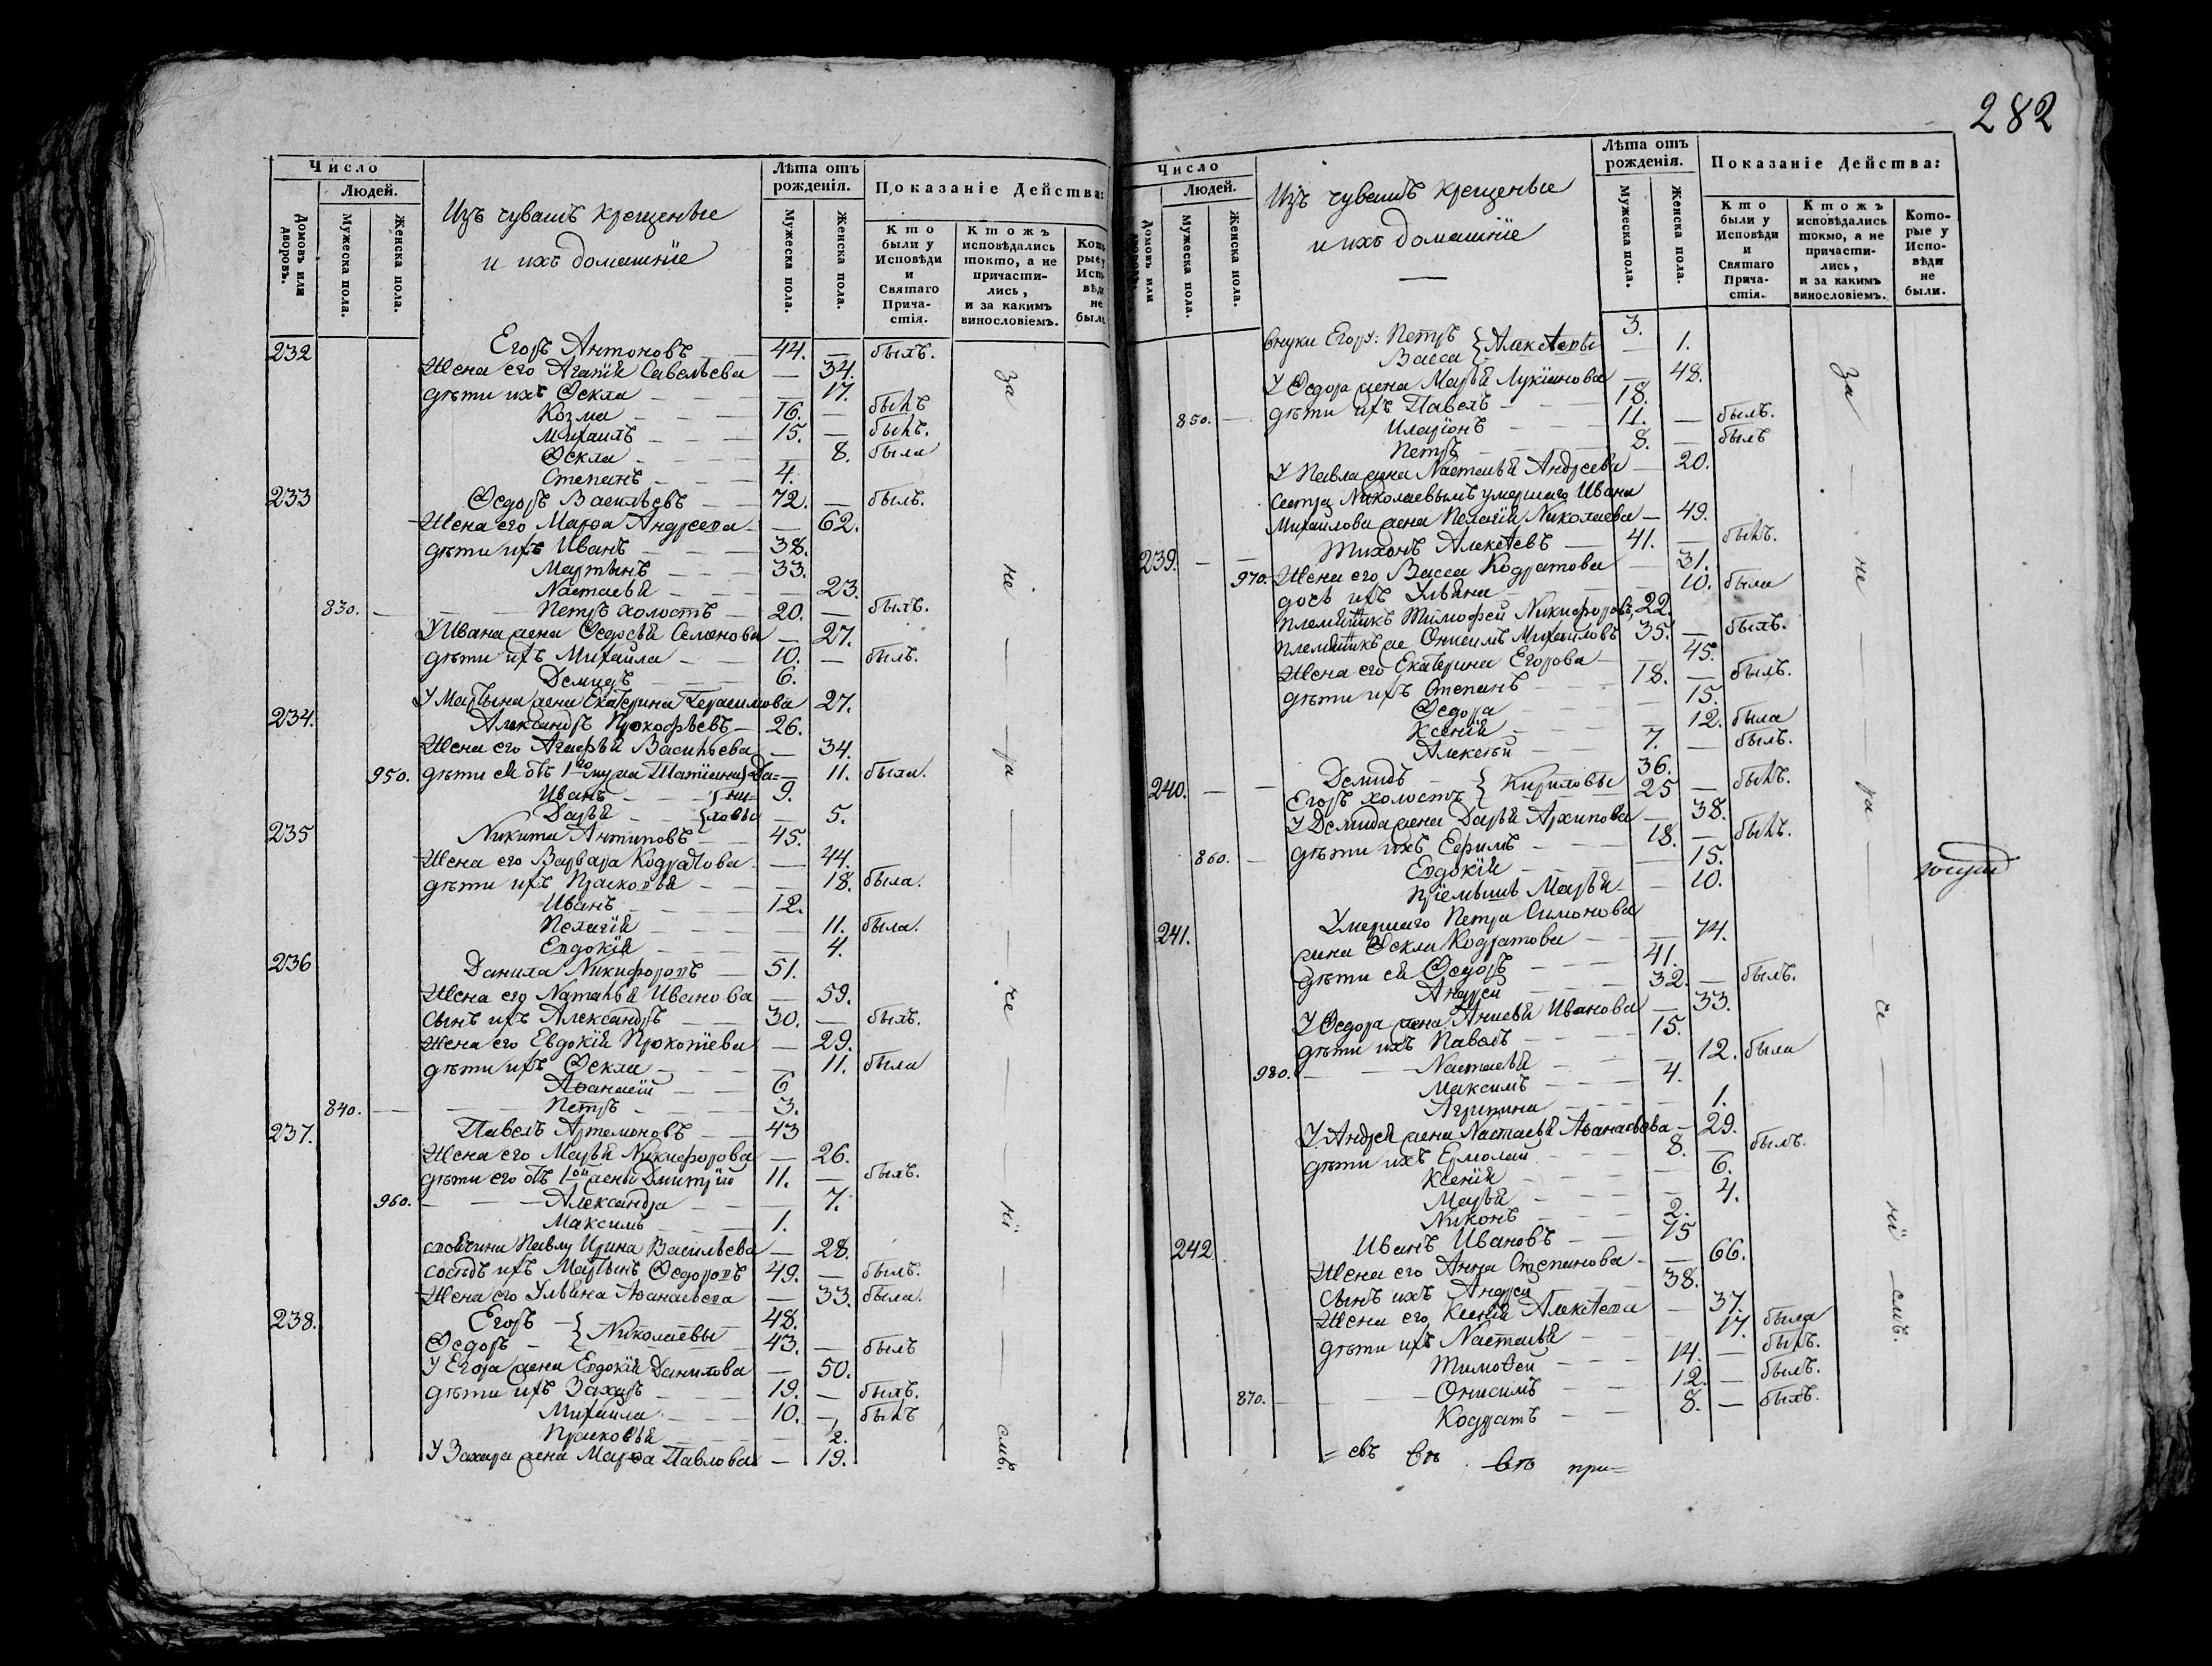 282
Число
Людей.
Домовъ или дворовъ.
Мужеска пола.
Женска пола.
Изъ чувашъ крещеные
и ихъ домашнїе
Лѣта отъ рожденія.
Мужеска пола.
Женска пола.
Показаніе Действа:
Кто были у Исповѣди и Святаго Причастія.
Ктожъ исповѣдались токмо, а не причастились, и за какимъ винословіемъ.
232 Егоръ Антоновъ 44. — былъ.
Жена его Агапїя Савельева — 34.
дѣти ихъ Ѳекла — 17.
Козма 16. — былъ
Михаилъ 15. — былъ.
Ѳекла — 8. была
Степанъ 4.
233 Ѳедоръ Васильевъ 72. — былъ.
Жена его Марѳа Андреева — 62.
дѣти ихъ Иванъ 38.
Мартынъ 33.
Настасья — 23.
830. — Петръ холостъ 20. — былъ.
У Ивана жена Ѳедосья Семенова — 27.
дѣти ихъ Михайла 10. — былъ.
Демидъ 6.
У Мартына жена Екатерина Герасимова 27.
234. Александръ Прокофьевъ 26.
Жена его Агафья Васильева — 34.
950. дѣти ей отъ 1го мужа Татїана Да= — 11. была.
Иванъ ни= 9.
Дарья ловы — 5.
235 Никита Антиповъ 45.
Жена его Варвара Кодратова — 44.
дѣти ихъ Прасковья — 18. была.
Иванъ 12.
Пелагїя — 11. была.
Евдокїя — 4.
236 Данила Никифоровъ 51.
Жена его Наталья Иванова — 59.
сынъ ихъ Александръ 30. — былъ.
Жена его Евдокїя Прокопїева — 29.
дѣти ихъ Ѳекла — 11. была
Аѳанасїй 6
840. — Петръ 3.
237. Павелъ Артемоновъ 43
Жена его Марья Никифорова — 26.
дѣти его отъ 1ой жены Дмитрїй 11. — былъ.
960. — Александра — 7.
Максимъ 1.
Павлу Ирина Васильева — 28.
сосѣдъ ихъ Мартынъ Ѳедоровъ 49. — былъ.
Жена его Ульяна Аѳанасьева — 33. была.
238. Егоръ Николаевы 48.
Ѳедоръ 43. — былъ
У Егора жена Евдокїя Данилова — 50.
дѣти ихъ Захаръ 19. — былъ.
Михайла 10. — былъ
Прасковья 2.
У Захара жена Марѳа Павлова — 19.
за — не — ра — че — нї — смъ.
Число
Людей.
Домовъ или дворовъ.
Мужеска пола.
Женска пола.
Изъ чувашъ крещеные
и ихъ домашнїе
Лѣта отъ рожденія.
Мужеска пола.
Женска пола.
Показаніе Действа:
Кто были у Исповѣди и Святаго Причастія.
Ктожъ исповѣдались токмо, а не причастились, и за какимъ винословіемъ.
Которые у Исповѣди не были.
внуки Егор: Петръ Алексѣевы 3.
Васса — 1.
У Ѳедора жена Марья Лукїанова — 48.
850. — дѣти ихъ Павелъ 18.
Иларїонъ 11. — былъ.
Петръ 8. — былъ
У Павла жена Настасья Андреева — 20.
Сестра Николаевымъ умершаго Ивана
Михайлова жена Пелагїя Николаева — 49.
239. — Тихонъ Алексѣевъ 41. — былъ.
970. Жена его Васса Кодратова — 31.
дочь ихъ Ульяна 10. была
племянникъ Тимофей Никифоровъ 22.
племянникъ же Онисимъ Михайловъ 35. — былъ.
Жена его Екатерина Егорова 45.
дѣти ихъ Степанъ 18. — былъ.
Ѳедора — 15.
Ксенїя — 12. была
Алексѣй 7. — былъ.
240. — Демидъ Кириловы 36.
Егоръ холостъ 25 — былъ.
У Демида жена Дарья Архипова — 38.
860. — дѣти ихъ Ефимъ 18. — былъ.
Евдокїя — 15.
прїемышъ Марья — 10.
241. Умершаго Петра Симонова
жена Ѳекла Кодратова — 74.
дѣти ей Ѳедоръ 41.
Андрей 32. — былъ.
У Ѳедора жена Анисья Иванова — 33.
дѣти ихъ Павелъ 15.
980. — Настасья — 12. была
Максимъ 4.
Агрипина — 1.
У Андрея жена Настасья Аѳанасьева — 29.
дѣти ихъ Ермолай 8. — былъ.
Ксенїя — 6.
Марья — 4.
Никонъ 2.
242 Иванъ Ивановъ 75
Жена его Анна Степанова — 66.
сынъ ихъ Андрей 38.
Жена его Ксенїя Алексѣева — 37.
дѣти ихъ Настасья — 17. была
Тимоѳей 14. — былъ.
870. — Онисимъ 12. — былъ.
Кодратъ 8. — былъ.
за — не — ра — че — нї — смъ.